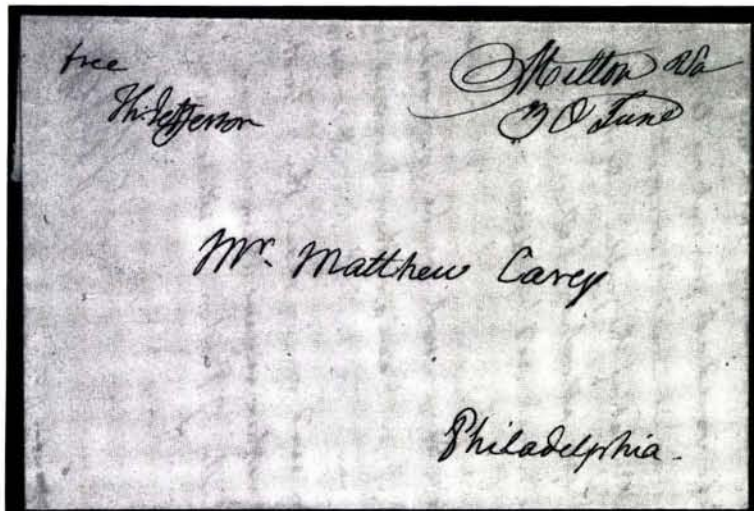 free
Th: Jefferson
Milton Va
30 June
Mr. Matthew Carey
Philadelphia.